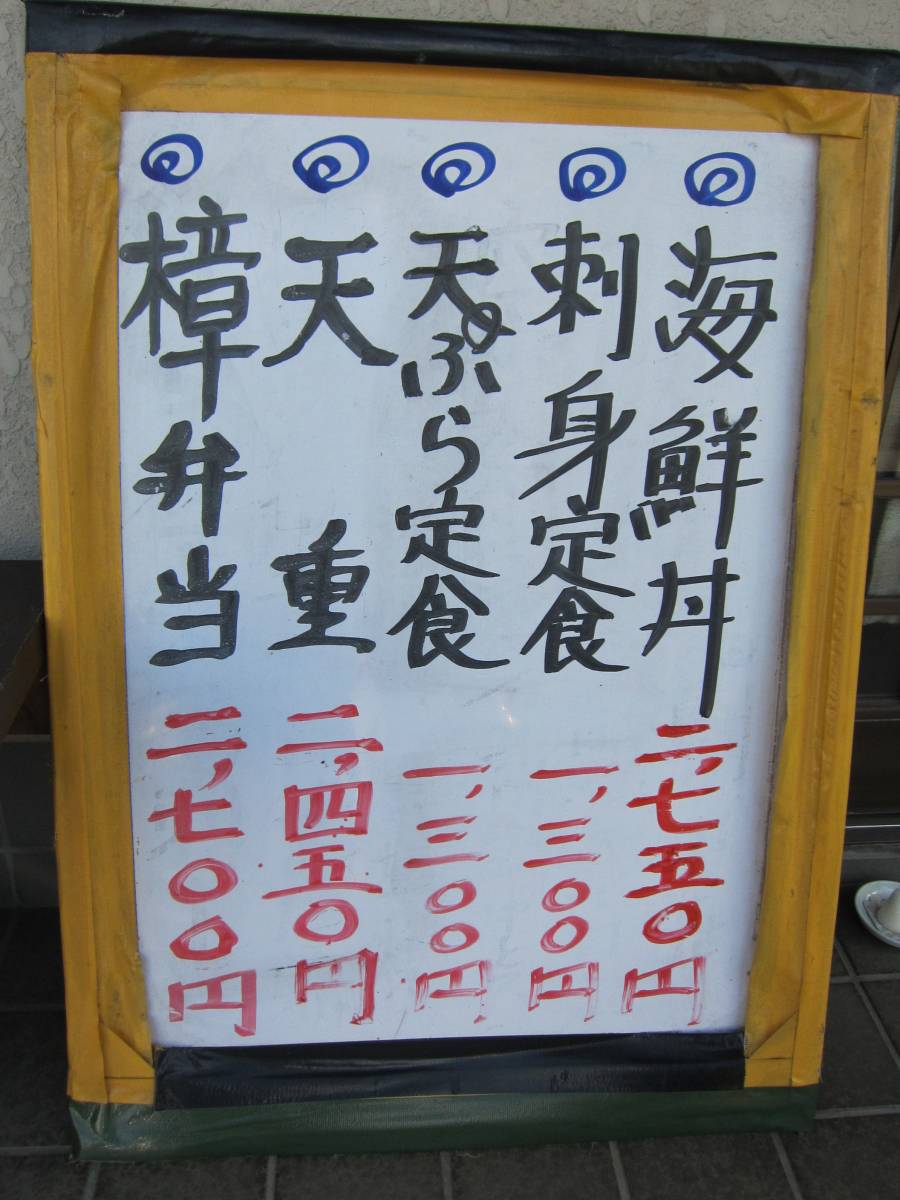 海鮮丼 二、七五〇円
刺身定食 一、三〇〇円
天ぷら定食 一、三〇〇円
天重 二、四五〇円
樟弁当 二、七〇〇円